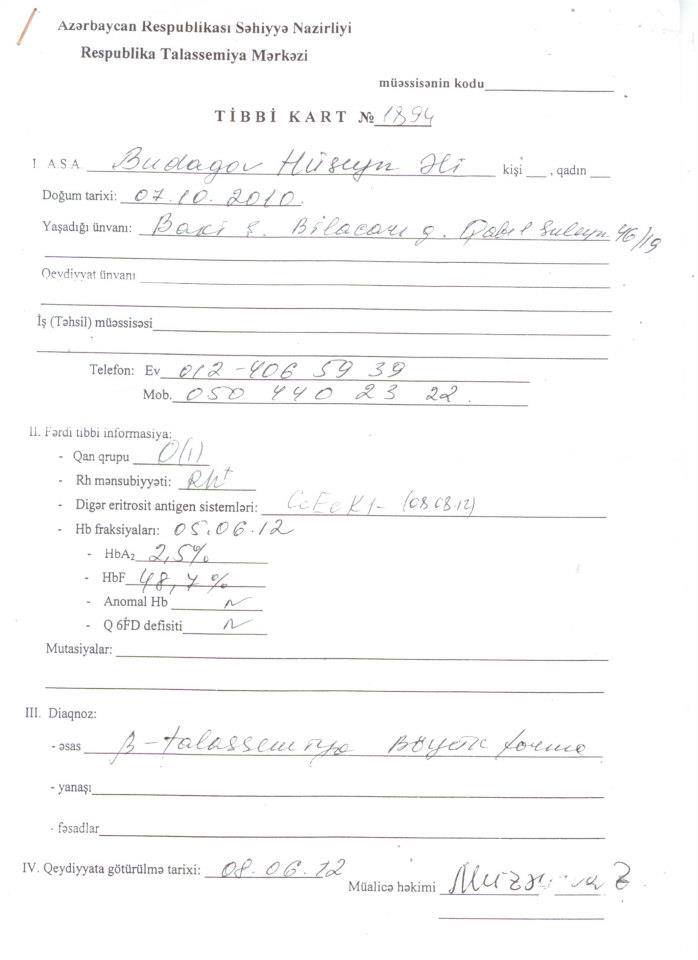 Azərbaycan Respublikası Səhiyyə Nazirliyi
Respublika Talassemiya Mərkəzi
müəssisənin kodu
TİBBİ KART № 1894
I A.S.A. Budagov Hüseyn Əli kişi , qadın
Doğum tarixi: 07.10.2010.
Yaşadığı ünvanı: Baki ş. Bilacari q. Qabil Suleyn 46/19
Qeydiyyat ünvanı
İş (Təhsil) müəssisəsi
Telefon: Ev 012-406 59 39
Mob. 050 440 23 22.
II. Fərdi tibbi informasiya:
- Qan qrupu O(I)
- Rh mənsubiyyəti: Rh+
- Digər eritrosit antigen sistemləri: CcEeK1- (08.08.12)
- Hb fraksiyaları: 05.06.12
- HbA₂ 2,5%
- HbF 48,7%
- Anomal Hb N
- Q 6FD defisiti N
Mutasiyalar:
III. Diaqnoz:
- əsas β-talassemiya Böyük forma
- yanaşı
- fəsadlar
IV. Qeydiyyata götürülmə tarixi: 08.06.12
Müalicə həkimi